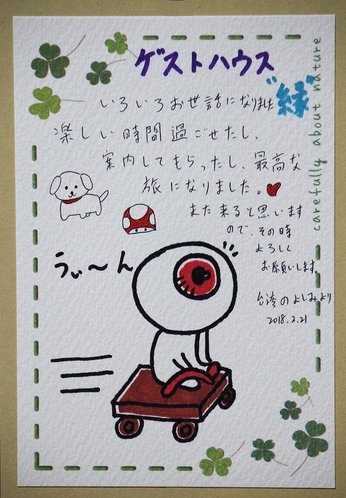 ゲストハウス
“縁”
いろいろお世話になりました
楽しい時間過ごせたし、
案内してもらったし、最高な
旅になりました。
また来ると思います
ので、その時
よろしく
お願いします。
うぃ〜ん
台湾のよしみより
2018.2.21
carefully about nature